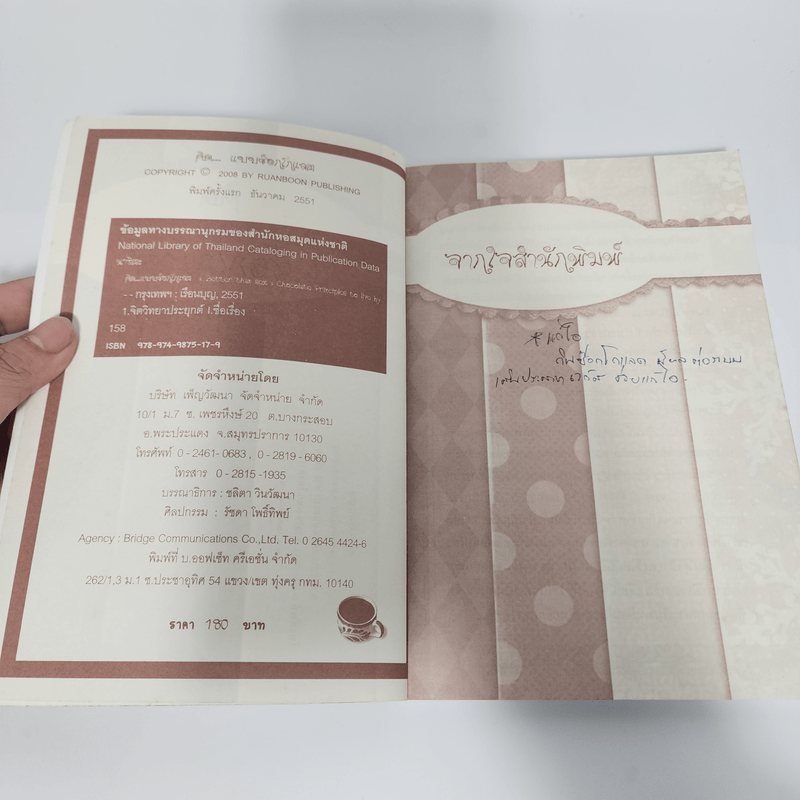 คิด... แบบช็อกโกแลต
COPYRIGHT © 2008 BY RUANBOON PUBLISHING
พิมพ์ครั้งแรก ธันวาคม 2551
ข้อมูลทางบรรณานุกรมของสำนักหอสมุดแห่งชาติ
National Library of Thailand Cataloging in Publication Data
-- กรุงเทพฯ : เรือนบุญ, 2551
1.จิตวิทยาประยุกต์ I.ชื่อเรื่อง
158
ISBN 978-974-9875-17-9
จัดจำหน่ายโดย
บริษัท เพ็ญวัฒนา จัดจำหน่าย จำกัด
10/1 ม.7 ซ. เพชรหึงษ์ 20 ต.บางกระสอบ
อ.พระประแดง จ.สมุทรปราการ 10130
โทรศัพท์ 0-2461-0683, 0-2819-6060
โทรสาร 0-2815-1935
บรรณาธิการ : ชลิตา วินวัฒนา
ศิลปกรรม : รัชดา โพธิ์ทิพย์
Agency : Bridge Communications Co.,Ltd. Tel. 0 2645 4424-6
พิมพ์ที่ บ.ออฟเซ็ท ครีเอชั่น จำกัด
262/1,3 ม.1 ซ.ประชาอุทิศ 54 แขวง/เขต ทุ่งครุ กทม. 10140
ราคา 180 บาท
จากใจสำนักพิมพ์
* แก้ไอ
กินช็อกโกแลต